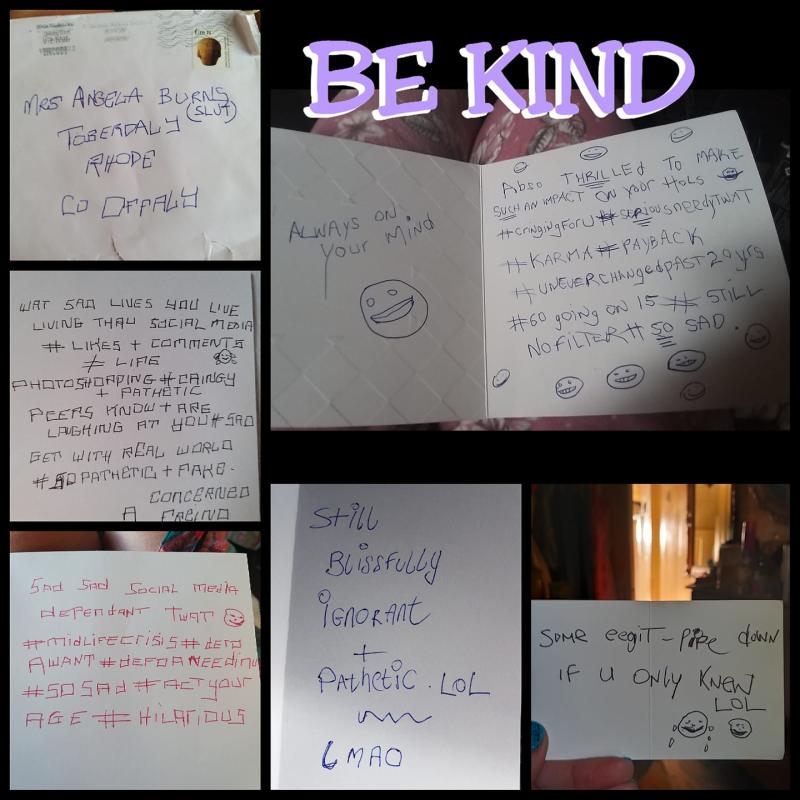 BE KIND
MRS ANGELA BURNS
(SLUT)
TOBERDALY
RHODE
CO OFFALY
ALWAYS ON
YOUR MIND
Abso THRILLEd TO MAKE
SUCH AN IMPACT ON YOUR HOLS
#cringingForU #SERIOUSneedyTWAT
#KARMA #PAYBACK
#UNEVERCHANGEdPAST 20 yrs
#60 going ON 15 # STILL
NO FILTER # SO SAD.
WAT SAD LIVES YOU LIVE
LIVING THRU SOCIAL MEDIA
# LIKES + COMMENTS
≠ LIFE
PHOTOSHOPPING #CRINGY
+ PATHETIC
PEERS KNOW + ARE
LAUGHING AT YOU #SAD
GET WITH REAL WORLD
#SO PATHETIC + FAKE.
CONCERNED
A FREIND
SAd SAd SOCIAL MEdIA
dEPENdANT TWAT
#MIdLIFECRISIS #dEFO
A WANT #dEFOANEEdinu
#SO SAd #ACT YOUR
AGE # HILARIOUS
Still
BLISSFULLY
IGNORANT
+
PATHETIC. LOL
LMAO
SOME eegiT - PIPE down
IF U ONLY KNEW
LOL